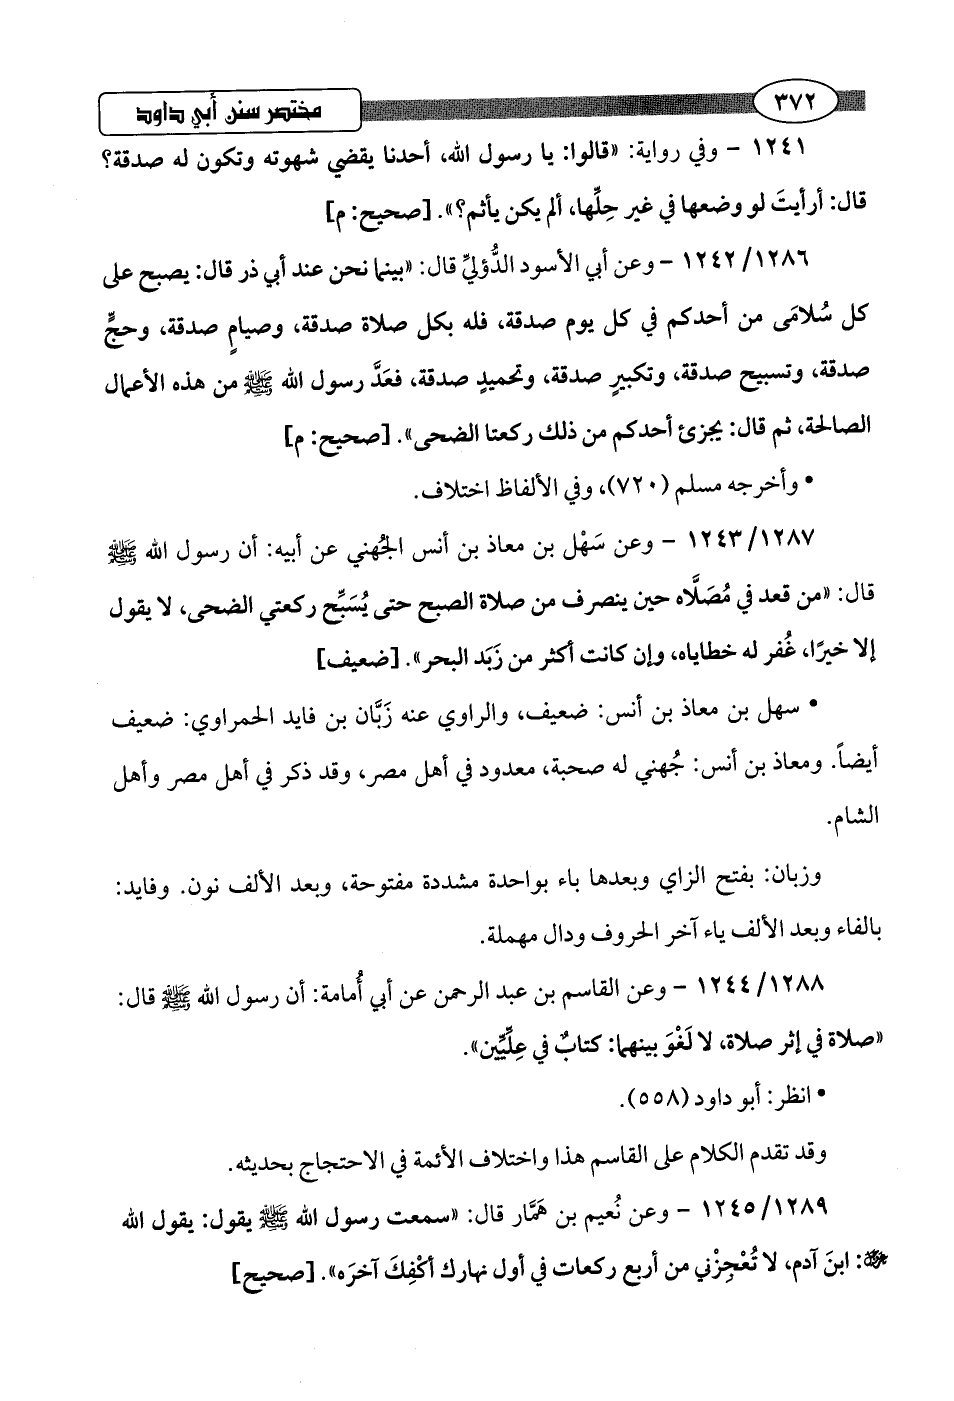 ٣٧٢
مختصر سنن أبي داود
١٢٤١ – وفي رواية: «قالوا: يا رسول الله، أحدنا يقضي شهوته وتكون له صدقة؟
قال: أرأيتَ لو وضعها في غير حِلِّها، ألم يكن يأثم؟». [صحيح: م]
١٢٤٢/١٢٨٦ – وعن أبي الأسود الدُّؤليِّ قال: «بينما نحن عند أبي ذر قال: يصبح على
كل سُلامَى من أحدكم في كل يوم صدقة، فله بكل صلاة صدقة، وصيامٍ صدقة، وحجٍّ
صدقة، وتسبيح صدقة، وتكبيرٍ صدقة، وتحميدٍ صدقة، فعَدَّ رسول الله ﷺ من هذه الأعمال
الصالحة، ثم قال: يجزئ أحدكم من ذلك ركعتا الضحى». [صحيح: م]
• وأخرجه مسلم (٧٢٠)، وفي الألفاظ اختلاف.
١٢٤٣/١٢٨٧ – وعن سَهْل بن معاذ بن أنس الجُهني عن أبيه: أن رسول الله ﷺ
قال: «من قعد في مُصَلَّاه حين ينصرف من صلاة الصبح حتى يُسَبِّح ركعتي الضحى، لا يقول
إلا خيرًا، غُفر له خطاياه، وإن كانت أكثر من زَبَد البحر». [ضعيف]
• سهل بن معاذ بن أنس: ضعيف، والراوي عنه زَبَّان بن فايد الحمراوي: ضعيف
أيضاً. ومعاذ بن أنس: جُهني له صحبة، معدود في أهل مصر، وقد ذكر في أهل مصر وأهل
الشام.
وزبان: بفتح الزاي وبعدها باء بواحدة مشددة مفتوحة، وبعد الألف نون. وفايد:
بالفاء وبعد الألف ياء آخر الحروف ودال مهملة.
١٢٤٤/١٢٨٨ – وعن القاسم بن عبد الرحمن عن أبي أُمامة: أن رسول الله ﷺ قال:
«صلاة في إثر صلاة، لا لَغْوَ بينهما: كتابٌ في عِلِّيِّين».
• انظر: أبو داود (٥٥٨).
وقد تقدم الكلام على القاسم هذا واختلاف الأئمة في الاحتجاج بحديثه.
١٢٤٥/١٢٨٩ – وعن نُعيم بن هَمَّار قال: «سمعت رسول الله ﷺ يقول: يقول الله
عز وجل: ابنَ آدم، لا تُعْجِزْني من أربع ركعات في أول نهارك أكْفِكَ آخرَه». [صحيح]